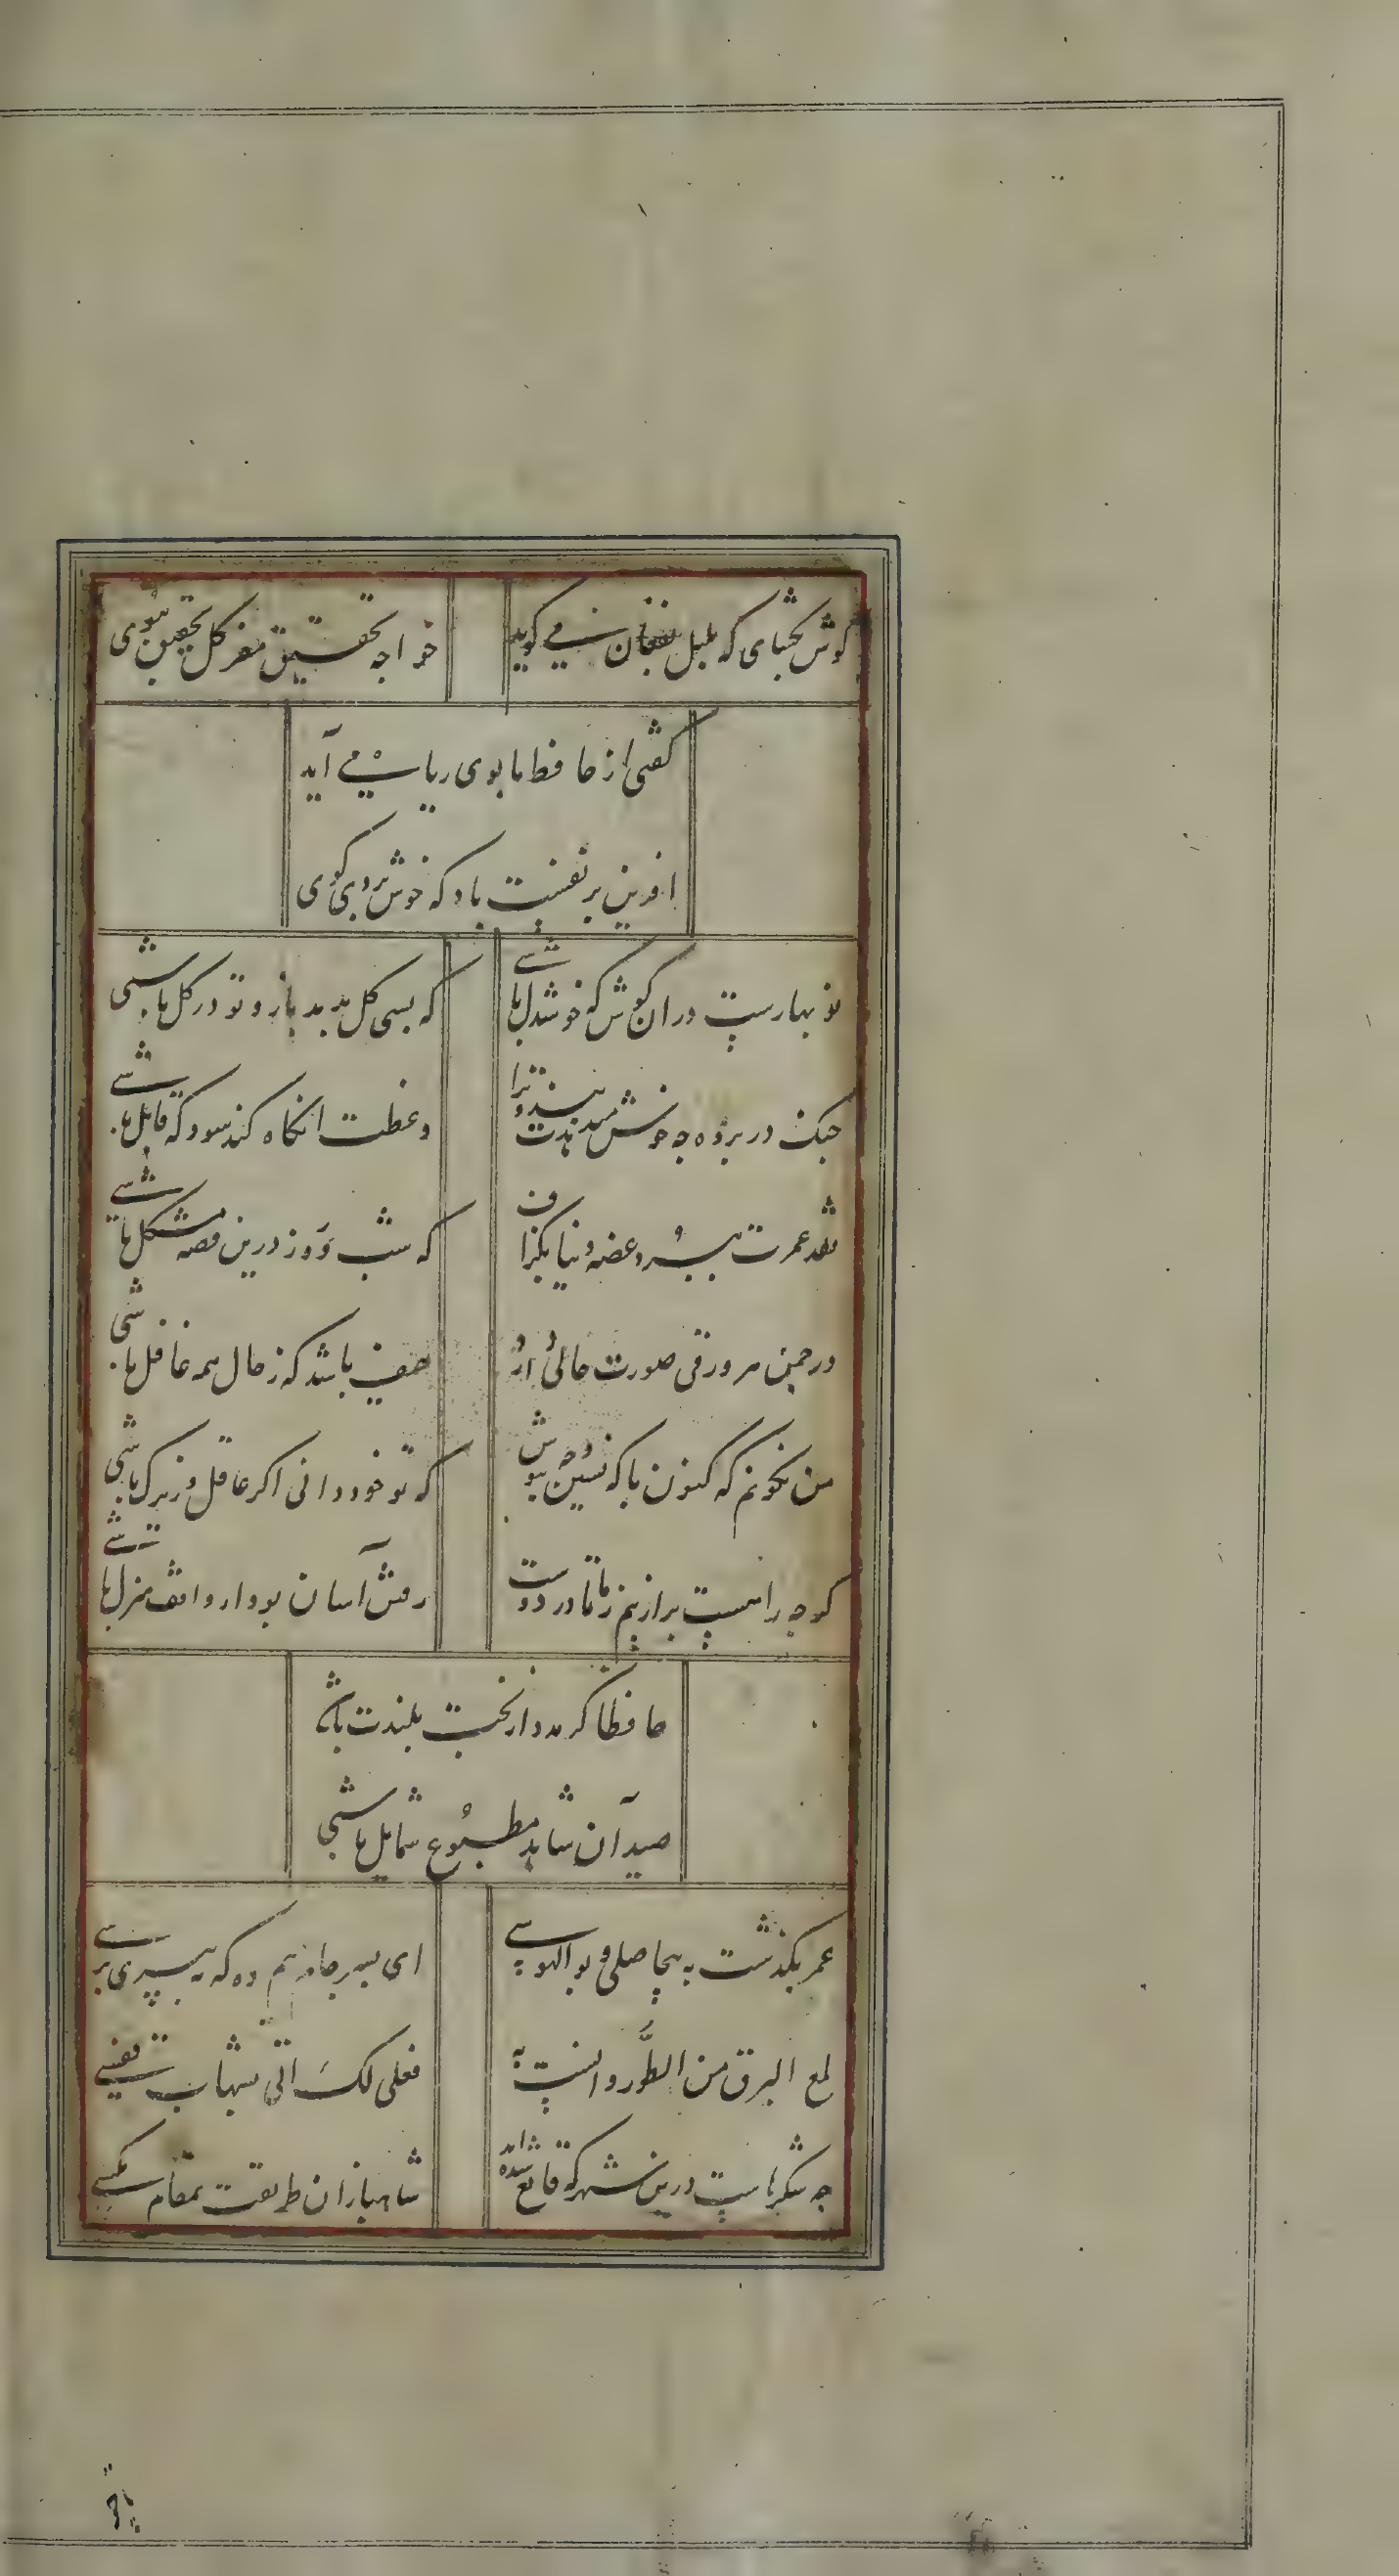 کوش بکشای که بلبل بفغان می کوید
خواجه تحقیق مفر کل تحقیق بنوی
کفتی از حافظ ما بوی ریا می آید
افرین بر نفست باد که خوش بردی بوی
نو بهارست دران کوش که خوشدل باشی
که بسی کل بدمد باز و تو در کل باشی
چنک در پرده چه خوش میدهدت پند ترا
وعظت انکاه کند سود که قابل باشی
نقد عمرت ببرد غصه دنیا بکزاف
که شب و روز درین قصه مشکل باشی
در چمن هر ورقی صورت حالی
حیف باشد که ز حال همه غافل باشی
من نکویم که کنون با که نشین و چه بنوش
که تو خود دانی اکر عاقل و زیرک باشی
کرچه راهیست پر از بیم ز ما تا در دوست
رفتن آسان بود ار واقف منزل باشی
حافظا کر مدد از بخت بلندت باشد
صید آن شاهد مطبوع شمایل باشی
عمر بکذشت به بیحاصلی و بوالهوسی
ای پسر جام میم ده که به پیری برسی
لمع البرق من الطور و انست به
فعلی لک اتی بشهاب قبسی
چه شکرهاست درین شهر که قانع شده اند
شاهبازان طریقت بمقام مکسی